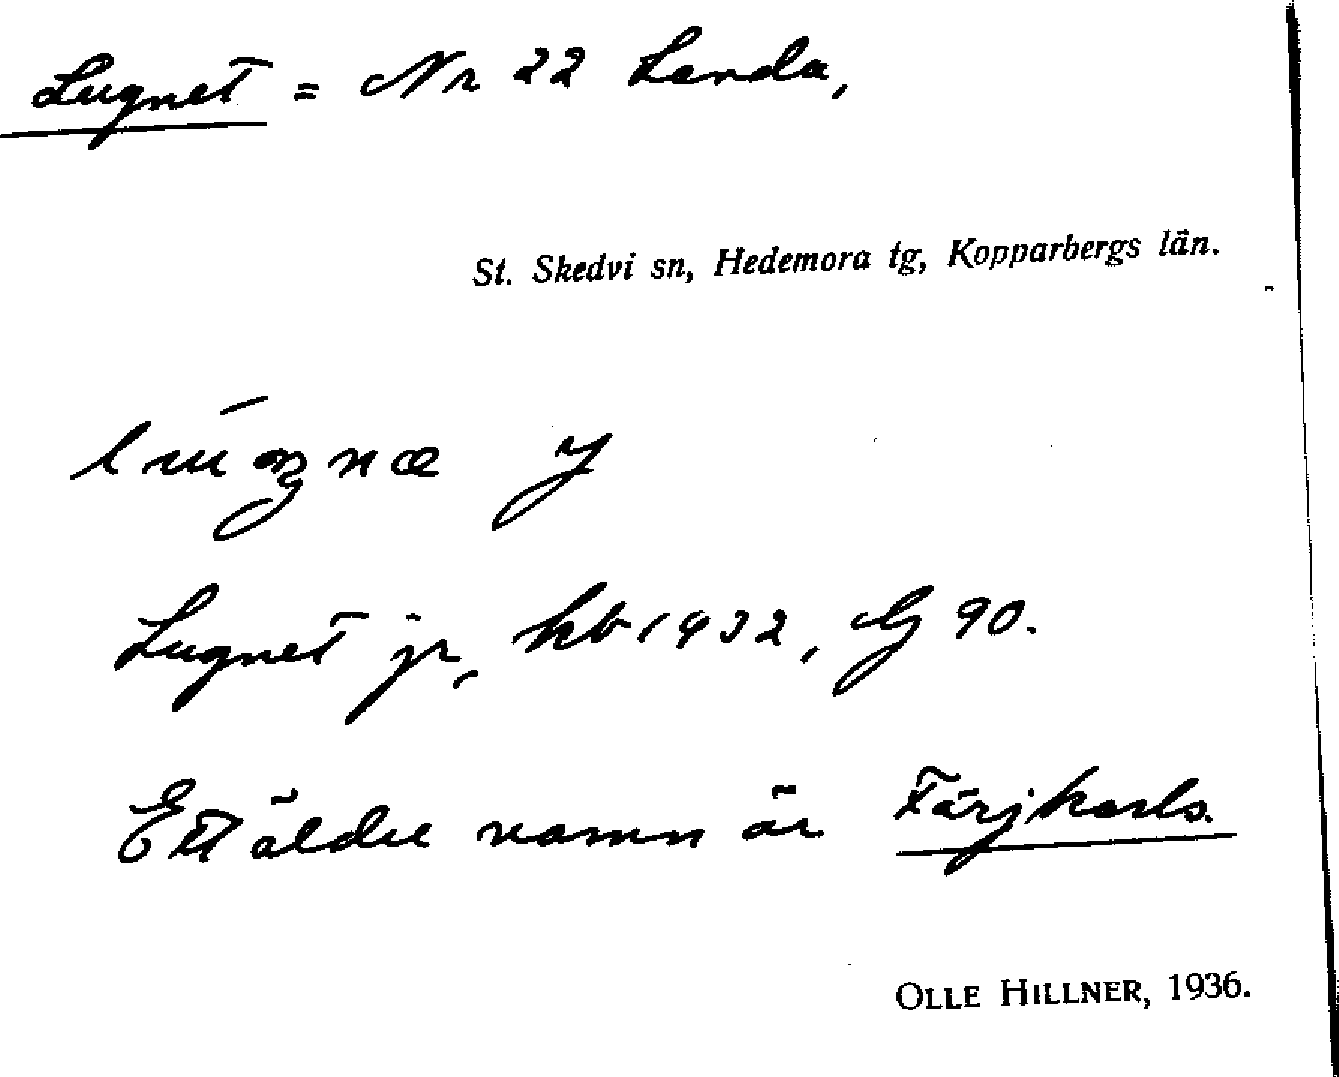 Lugnet = Nr 22 Landa,
St. Skedvi sn, Hedemora tg, Kopparbergs län.
Lugnet jr, kb 1932, G 90.
Ett äldre namn är Färjkarls.
OLLE HILLNER, 1936.